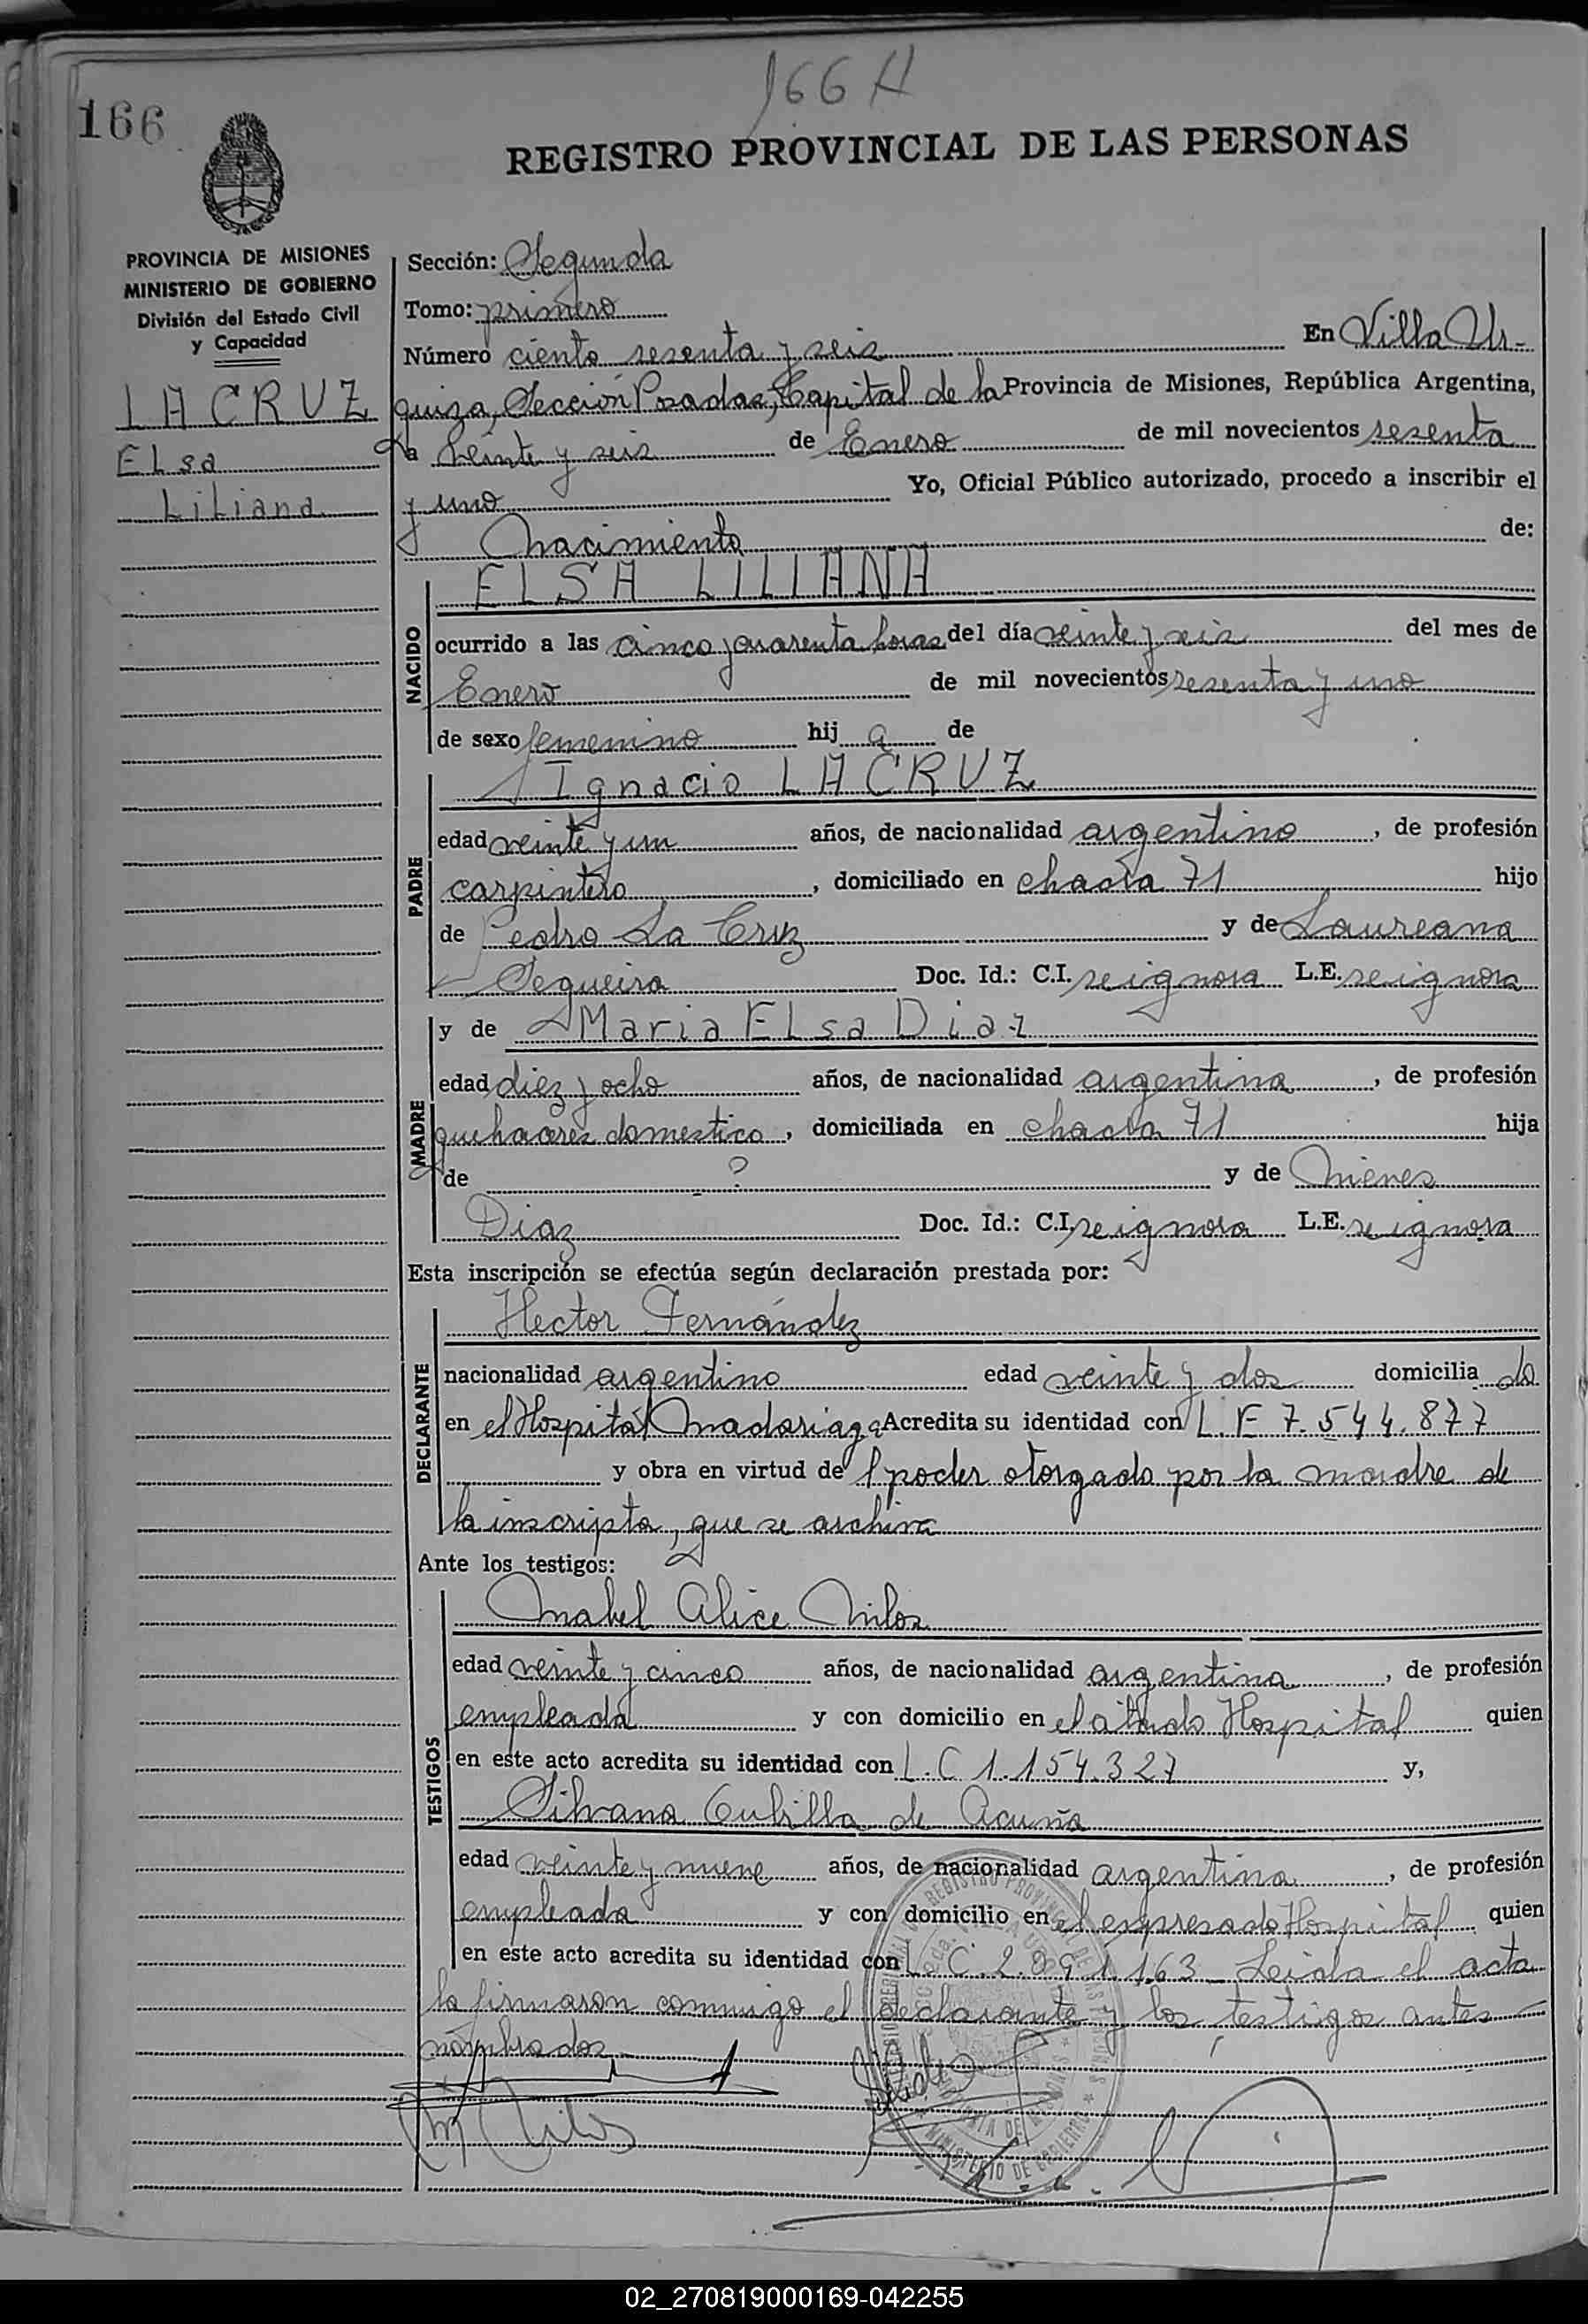 166 H
166
REGISTRO PROVINCIAL DE LAS PERSONAS
PROVINCIA DE MISIONES
MINISTERIO DE GOBIERNO
División del Estado Civil
y Capacidad
LA CRUZ
Elsa
Liliana
Sección: Segunda
Tomo: primero
Número ciento sesenta y seis En Villa Ur-
quiza, Sección Posadas, Capital de la Provincia de Misiones, República Argentina,
a veinte y seis de Enero de mil novecientos sesenta
y uno Yo, Oficial Público autorizado, procedo a inscribir el
Nacimiento de:
NACIDO
ELSA LILIANA
ocurrido a las cinco y cuarenta horas del día veinte y seis del mes de
Enero de mil novecientos sesenta y uno
de sexo femenino hij a de
PADRE
Ignacio LA CRUZ
edad veinte y un años, de nacionalidad argentino, de profesión
carpintero, domiciliado en chacra 71 hijo
de Pedro La Cruz y de Laureana
Sequeira Doc. Id.: C.I. se ignora L.E. se ignora
MADRE
y de Maria Elsa Diaz
edad diez y ocho años, de nacionalidad argentina, de profesión
quehaceres domestico, domiciliada en chacra 71 hija
de ? y de Nieves
Diaz Doc. Id.: C.I. se ignora L.E. se ignora
Esta inscripción se efectúa según declaración prestada por:
DECLARANTE
Hector Fernández
nacionalidad argentino edad veinte y dos domicilia do
en el Hospital Madariaga Acredita su identidad con L. E 7.544.877
y obra en virtud de l poder otorgado por la madre de
la inscripta, que se archiva
Ante los testigos:
TESTIGOS
Mabel Alice Milos
edad veinte y cinco años, de nacionalidad argentina, de profesión
empleada y con domicilio en el citado Hospital quien
en este acto acredita su identidad con L. C 1.154.327 y,
Silvana Cubilla de Acuña
edad veinte y nueve años, de nacionalidad argentina, de profesión
empleada y con domicilio en el expresado Hospital quien
en este acto acredita su identidad con L. C. 2.891.163 Leida el acta
la firmaron conmigo el declarante y los testigos antes
nombrados
REGISTRO PROVINCIAL DE LAS PERSONAS
MINISTERIO DE GOBIERNO
02_270819000169-042255